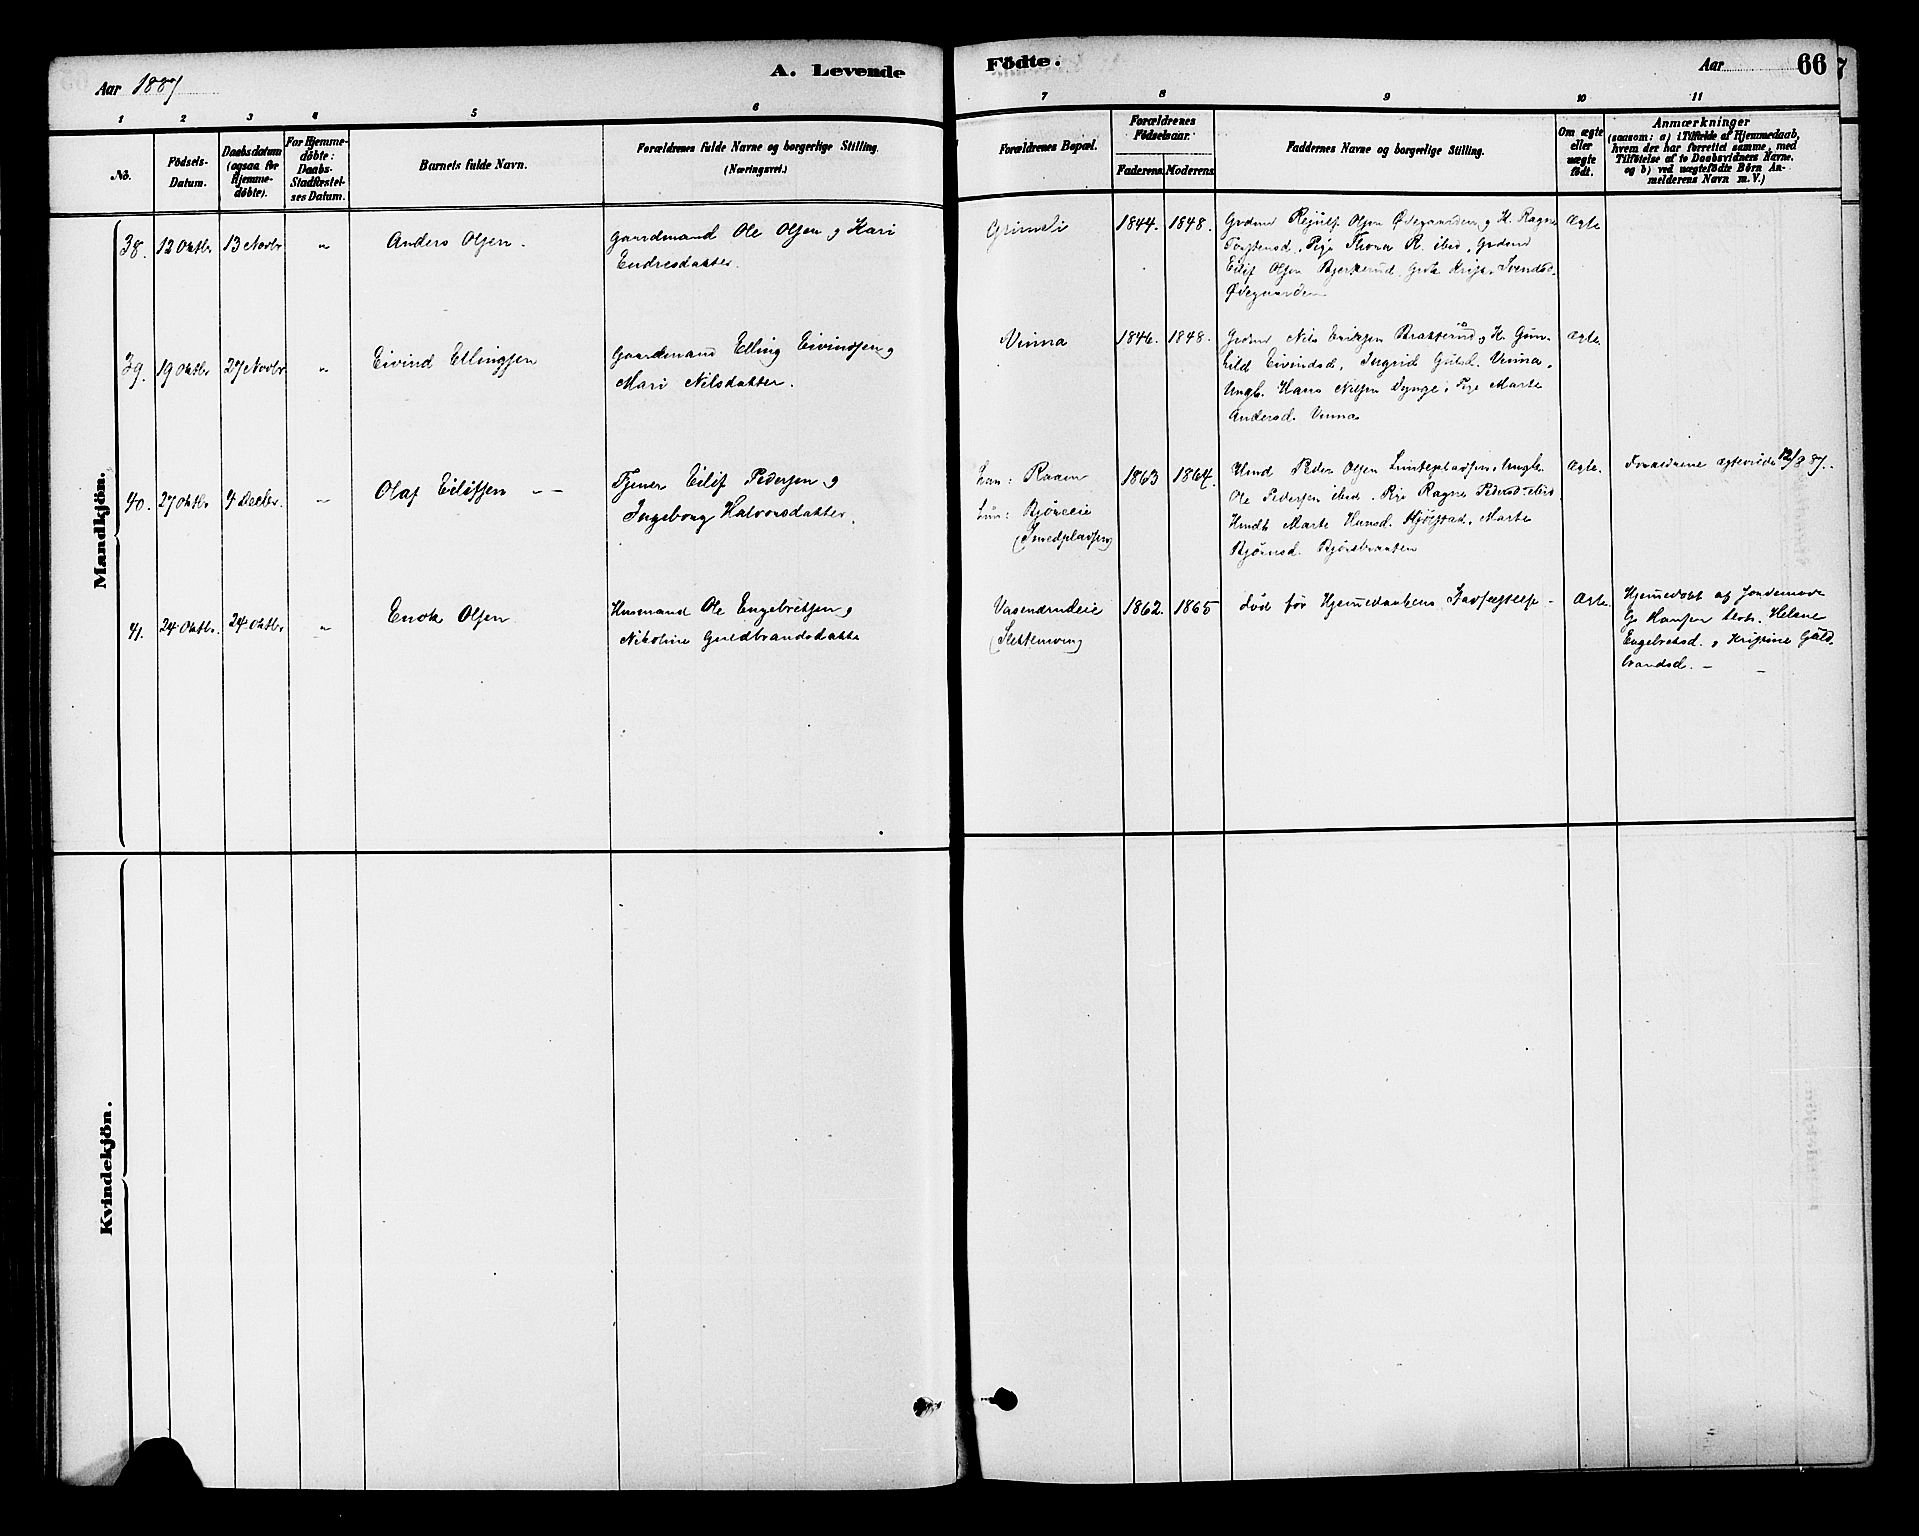 Aar 1887
A. Levende
Födte.
Aar
66
1 2 3 4 5 6 7 8 9 10 11
No.
Födsels-
Datum.
Daabsdatum
(ogsaa for
Hjemme-
döbte).
For Hjemme-
döbte:
Daabs-
Stadfæstel-
ses Datum.
Barnets fulde Navn.
Forældrenes fulde Navne og borgerlige Stilling.
(Næringsvei.)
Forældrenes Bopæl.
Forældrenes
Födselsaar.
Faderens Moderens
Faddernes Navne og borgerlige Stilling.
Om ægte
eller
uægte
födt.
Anmærkninger
(saasom: a) i Tilfælde af Hjemmedaab,
hvem der har forrettet samme, med
Tilföielse af to Daabsvidners Navne.
og b) ved uægtefödte Börn An-
melderens Navn m. V.)
Mandkjön.
38. 12 Oktbr 13 Novbr " Anders Olsen.
Gaardmand Ole Olsen og Kari
Endresdatter.
Grimeli 1844. 1848.
Gndmd Rejulf Olsen Ødegaarden og K. Ragne
Torstensd., Pige Thora R. ibid, Grdmd
Eilif Olsen Bjerkerud, Svendsd.
Ødegaarden
Ægte
39. 19 Oktbr 27 Novbr " Eivind Ellingsen
Gaardmand Elling Eivindsen og
Mari Nilsdatter.
Vinna 1846. 1848.
Grdmd Nils Eriksen og K. Gun-
hild Eivindsd, Ingrid Gulsd. Vinna,
Ungk. Hans Nilsen Pige Marte
Andersd. Vinna
Ægte
40. 27 Oktbr 4 Decbr. " Olaf Eilifsen
Tjener Eilif Pedersen og
Ingeborg Halvorsdatter.
Han: Raaen
Hun: Bjøreeie
(Smedpladsen)
1863 1864.
Hmd Peder Olsen Ungk.
Ole Pedersen ibid. Pige Ragne Pedersd ibid
Marte Hansd. Marte
Bjørnsd. Bjørebraaten
Ægte.
Forældrene ægteviede 12/8 87.
41. 24 Oktbr. 24 Oktbr " Enok Olsen
Husmand Ole Engebretsen og
Nikoline Guldbrandsdatter
Vasendrudeie
(Slettemoen)
1862. 1865
Død før Hjemmedaabens Stadfæstelse -
Ægte.
Hjemmedøbt af Jordemode
G. Hansen Helene
Engebretsd. og Kristine Guld-
brandsd.
Kvindekjön.